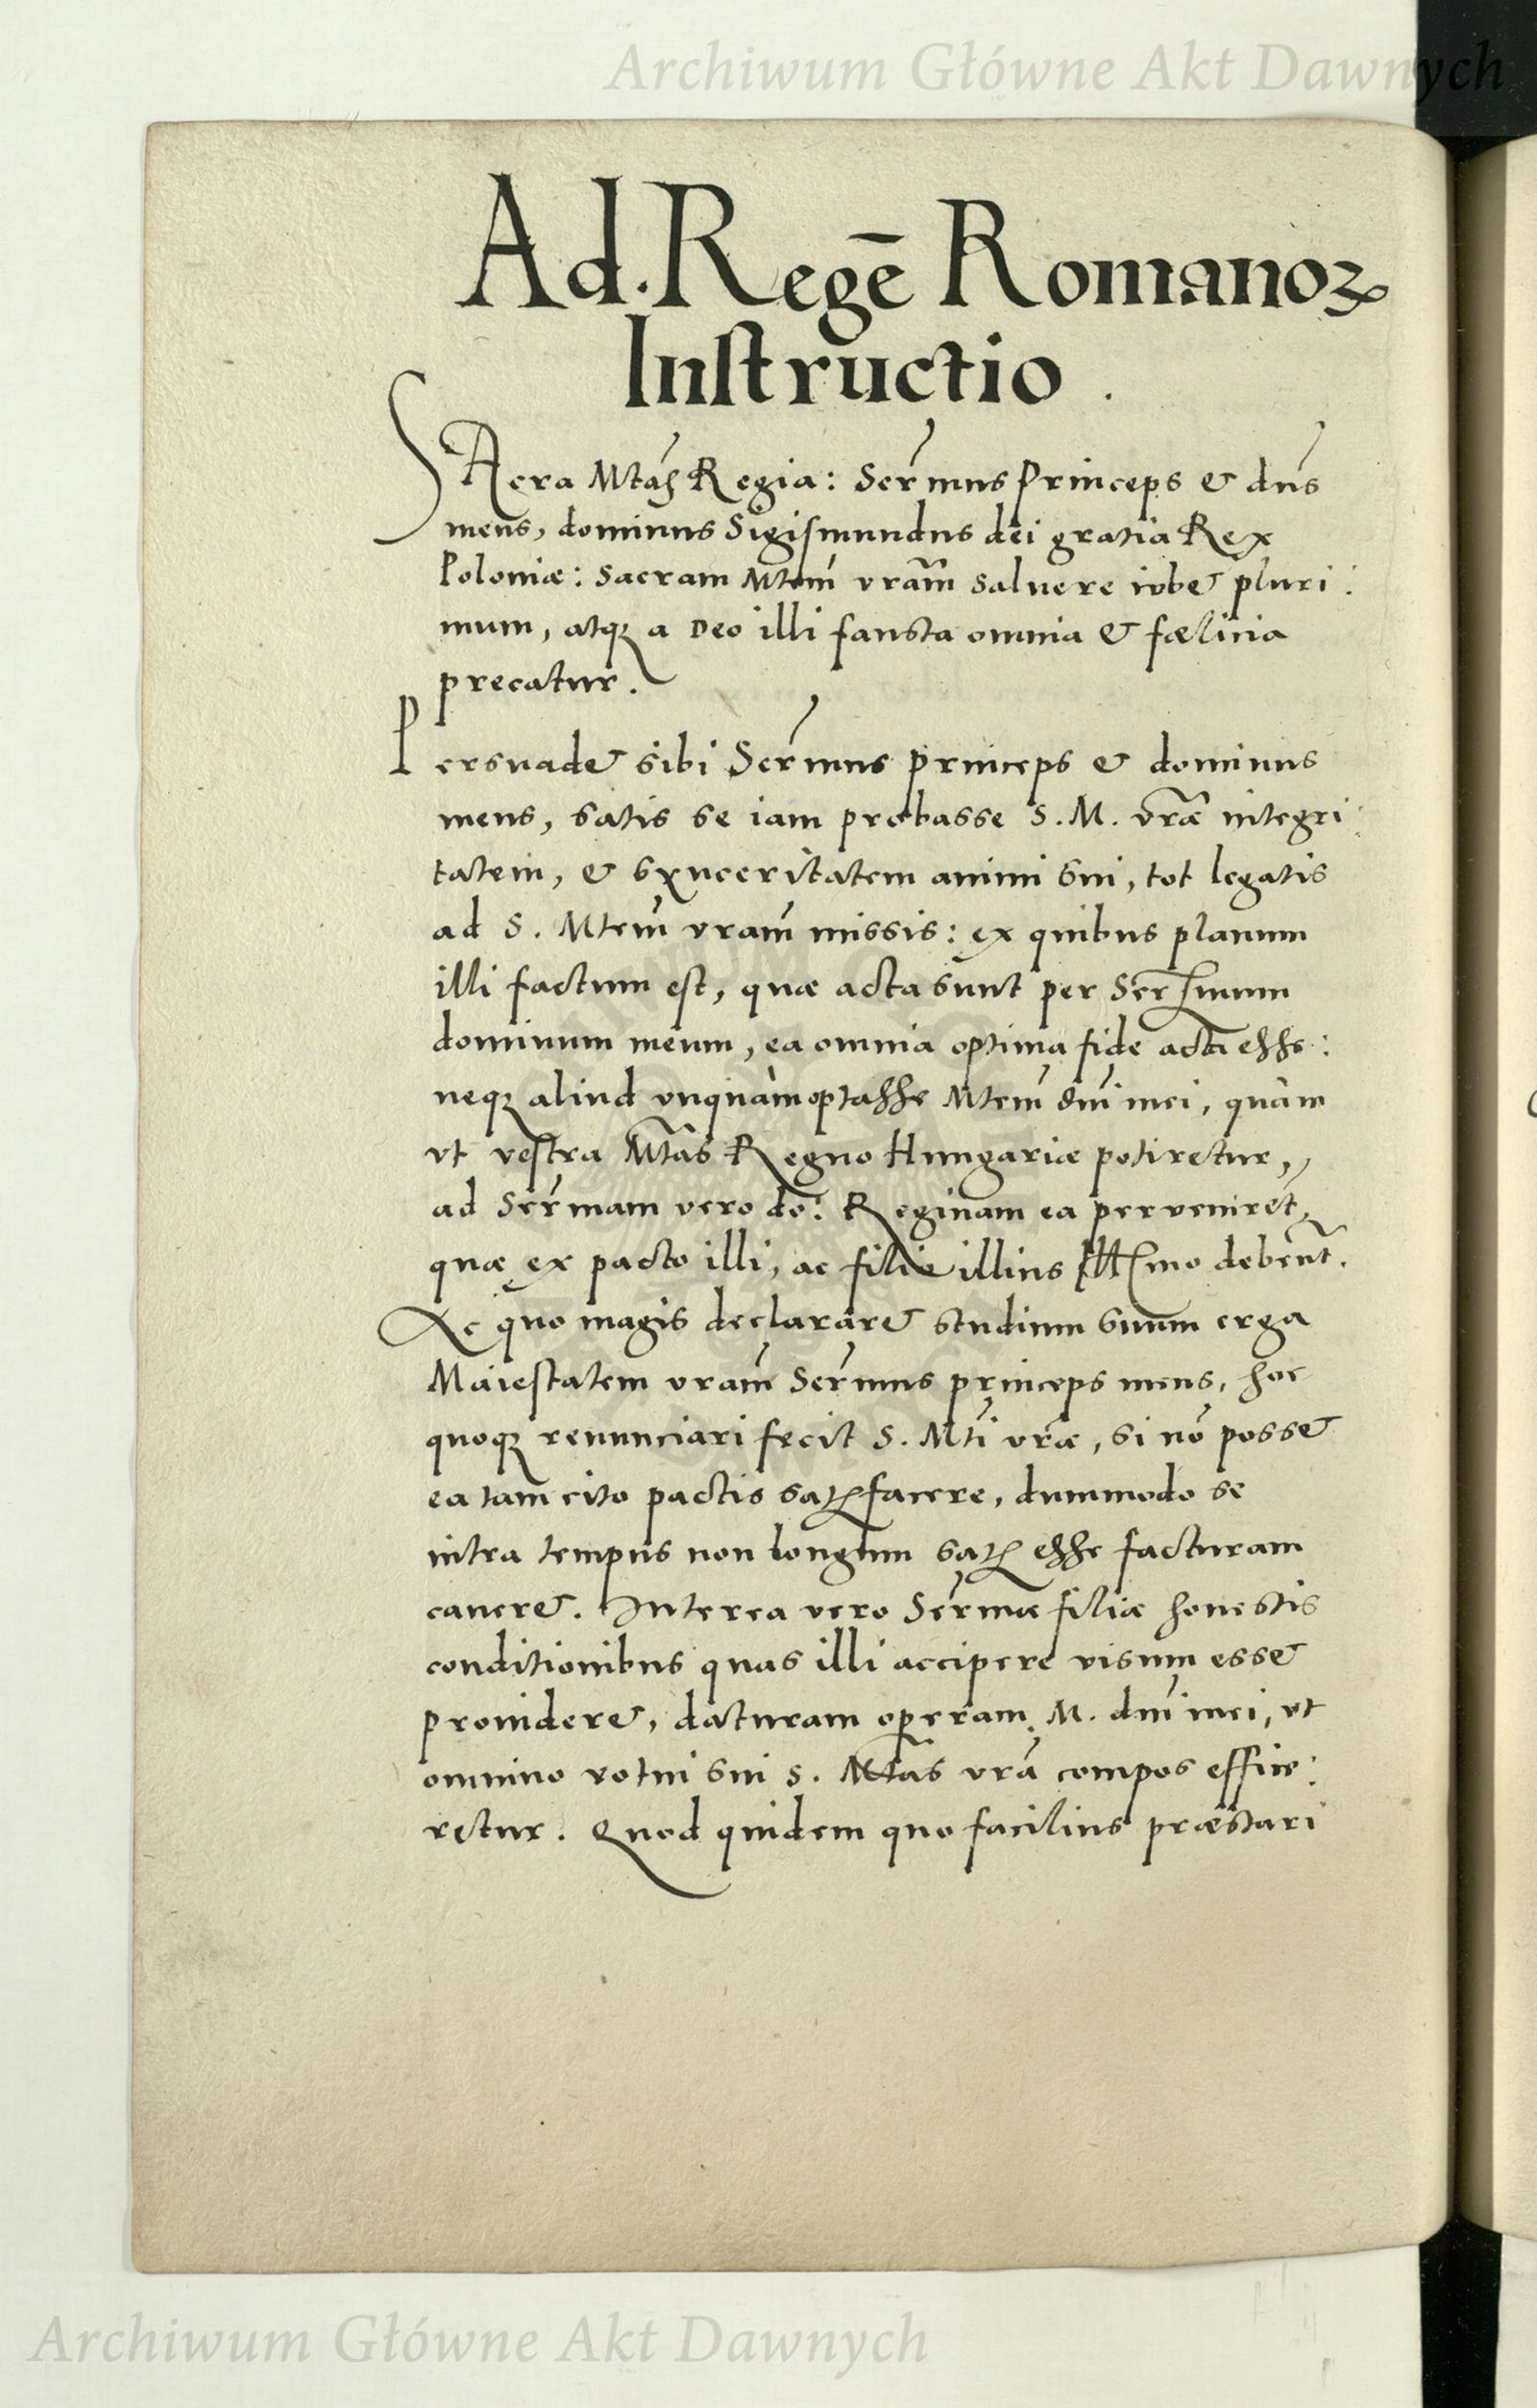 Archiwum Główne Akt Dawnych
Ad. Regē Romanoꝝ
Instructio.
SAcra Mtas Regia: Sermus Princeps & dns
meus, dominus Sigismundus dei gratia Rex
Poloniæ: sacram Mtem vram salvere iubet pluri:
mum, atqꝫ a Deo illi fausta omnia & fælicia
precatur.
Persuadet sibi Sermus princeps & dominus
meus, satis se iam probasse S. M. vræ integri:
tatem, & synceritatem animi sui, tot legatis
ad S. Mtem vram missis: ex quibus planum
illi factum est, quæ acta sunt per Sermum
dominum meum, ea omnia optima fide acta esse:
neqꝫ aliud unquàm optasse Mtem dni mei, quàm
ut vestra Mtas Regno Hungariæ potiretur,
ad Sermam vero do: Reginam ea pervenirẽt,
quæ ex pacto illi, ac filio illius Illmo debent̃.
Ac quo magis declararet studium suum erga
Maiestatem vram Sermus princeps meus, hoc
quoqꝫ renunciari fecit S. Mti vræ, si nō posset
ea tam cito pactis satis facere, dummodo se
intra tempus non longum satis esse facturam
caveret. Interea vero Sermæ filiæ honestis
conditionibus quas illi accipere visum esset
provideret, daturam operam M. dni mei, ut
omnino voti sui S. Mtas vra compos effice:
retur. Quod quidem quo facilius præstari
Archiwum Główne Akt Dawnych